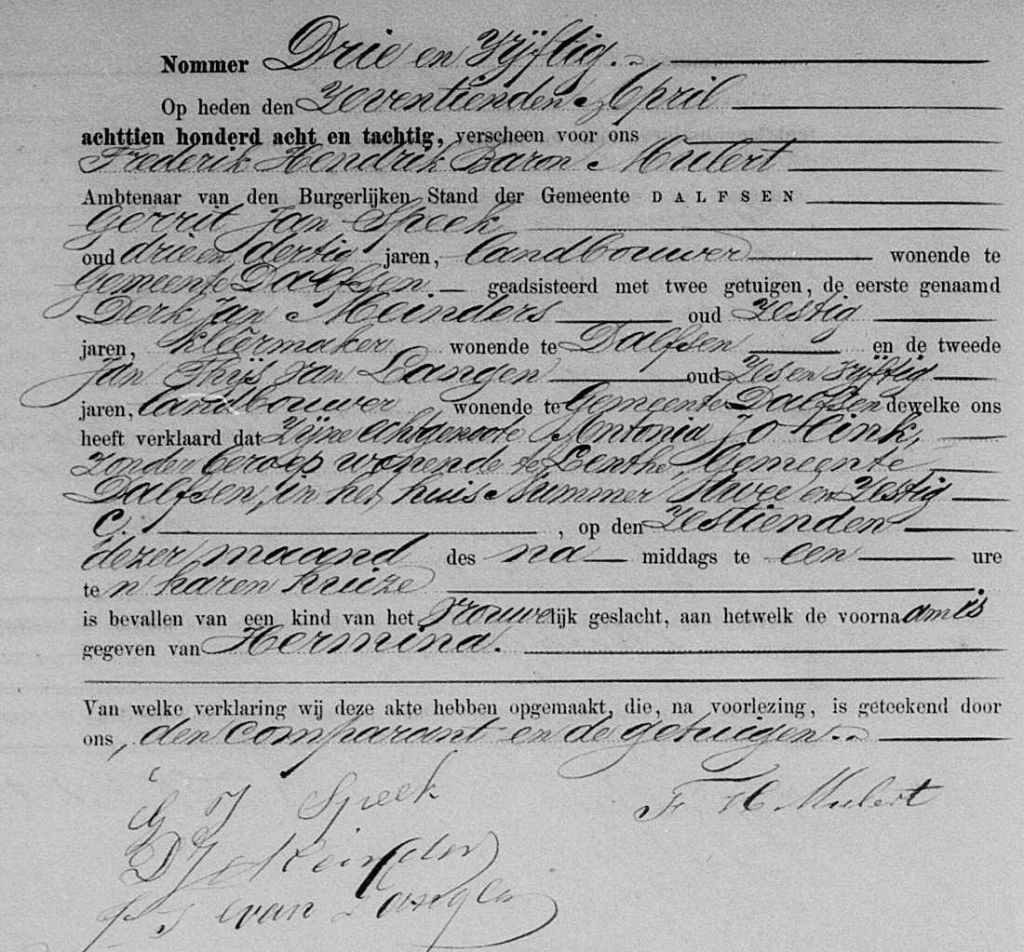 Nommer Drie en Vijftig.
Op heden den Zeventienden April
achttien honderd acht en tachtig, verscheen voor ons
Frederik Hendrik Baron Mulert
Ambtenaar van den Burgerlijken Stand der Gemeente DALFSEN
Gerrit Jan Speek
oud drie en dertig jaren, landbouwer wonende te
Gemeente Dalfsen geadsisteerd met twee getuigen, de eerste genaamd
Derk Jan Meinders oud Zestig
jaren, kleermaker wonende te Dalfsen en de tweede
Jan Thijs van Langen oud Zes en vijftig
jaren, landbouwer wonende te Gemeente Dalfsen dewelke ons
heeft verklaard dat Zijne echtgenoote Antonia
zonder beroep wonende te Lenthe, Gemeente
Dalfsen, in het huis Nummer twee en Zestig
C. , op den Zestienden
dezer maand des na middags te een ure
te n haren huize
is bevallen van een kind van het vrouwelijk geslacht, aan hetwelk de voornaam is
gegeven van Hermina.
Van welke verklaring wij deze akte hebben opgemaakt, die, na voorlezing, is geteekend door
ons, den Comparant en de getuigen.
G J Speek
F H Mulert
D J Meinders
J T van Langen